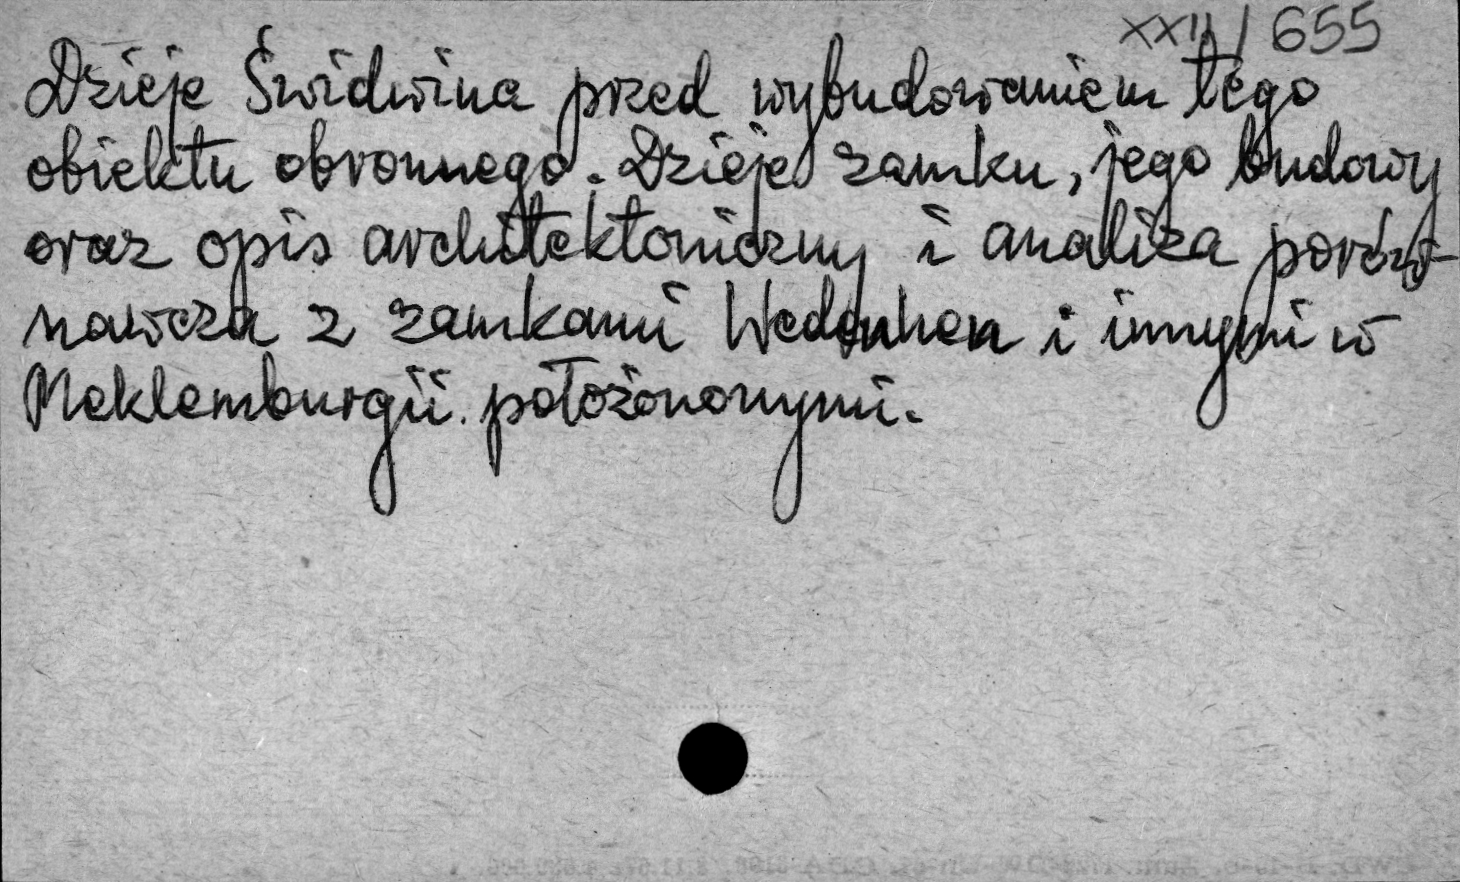 XXII/655
Dzieje Świdwina przed wybudowaniem tego
obiektu obronnego. Dzieje zamku, jego budowy
oraz opis architektoniczny i analiza porów-
nawcza z zamkami i innymi w
Meklemburgii położonowymi.